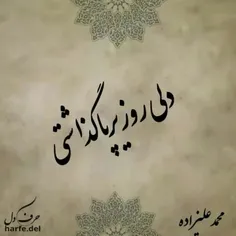 دلی روزیر ما گذاشتی
محمد علیزاده
حرف دل
harfe.del